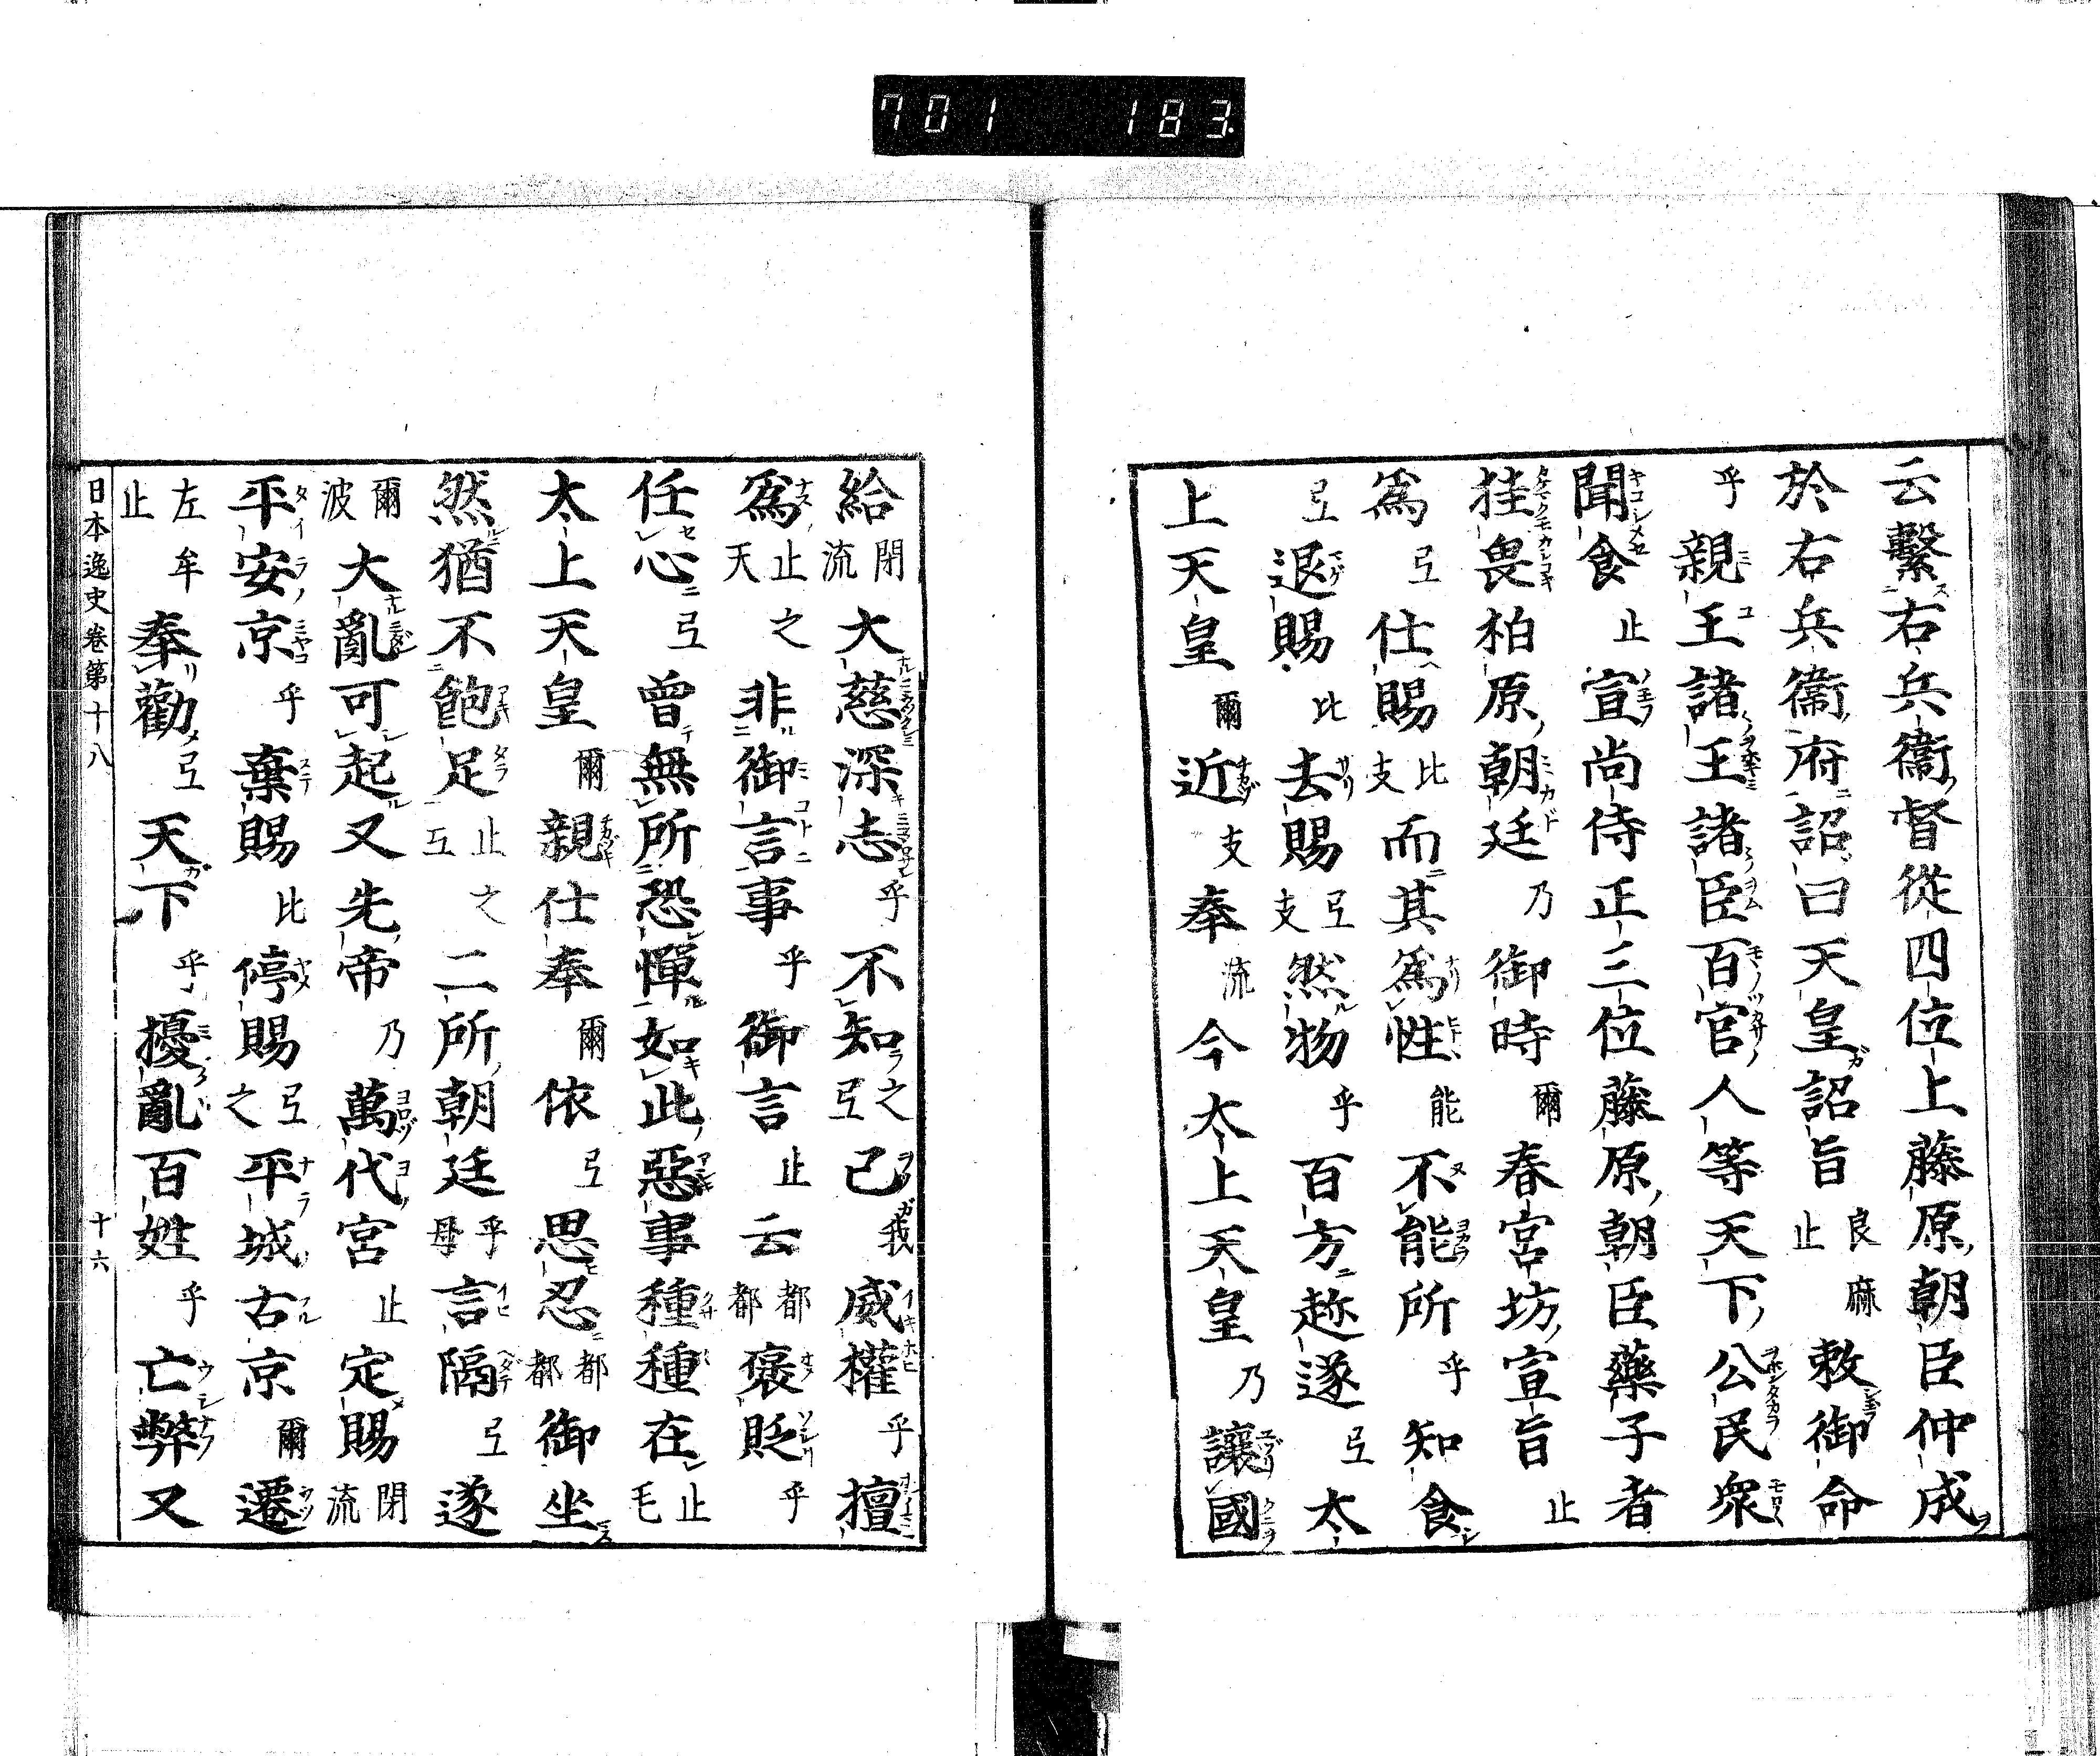 701 183
云繫右兵衞督從四位上藤原朝臣仲成
於右兵衞府詔曰天皇詔旨良麻止敕御命
乎親王諸王諸臣百官人等天下公民衆
聞食止宣尚侍正三位藤原朝臣藥子者
挂畏柏原朝廷乃御時爾春宮坊宣旨止
爲弖仕賜比支而其爲性能不能所乎知食
弖退賜比去賜弖支然物乎百方趁逐弖太
上天皇爾近支奉流今太上天皇乃讓國
給閉流大慈深志乎不知之弖己我威權乎擅
爲止天之非御言事乎御言止云都都褒貶乎
任心弖曾無所恐憚如此惡事種種在止毛
太上天皇爾親仕奉爾依弖思忍都都御坐
然猶不飽足止之弖二所朝廷乎母言隔弖遂
爾波大亂可起又先帝乃萬代宮止定賜閉流
平安京乎棄賜比停賜弖之平城古京爾遷
左牟止奉勸弖天下乎擾亂百姓乎亡弊又
日本逸史卷第十八 十六